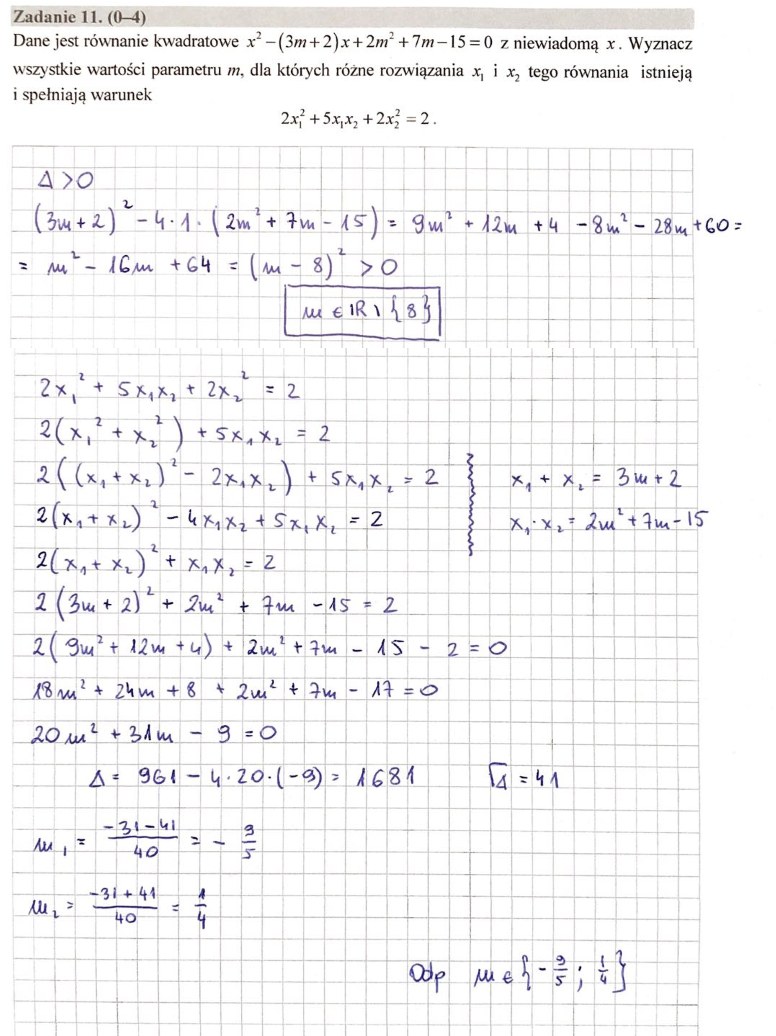 Zadanie 11. (0–4)
Dane jest równanie kwadratowe x² −(3m+2)x+2m² +7m−15=0 z niewiadomą x. Wyznacz
wszystkie wartości parametru m, dla których różne rozwiązania x₁ i x₂ tego równania istnieją
i spełniają warunek
2x₁² +5x₁x₂ +2x₂² = 2 .
Δ >0
(3m+2)² − 4·1·(2m² + 7m − 15) = 9m² + 12m + 4 − 8m² − 28m + 60 =
= m² − 16m + 64 = (m − 8)² > 0
m ∈ ℝ \ {8}
2x₁² + 5x₁x₂ + 2x₂² = 2
2(x₁² + x₂²) + 5x₁x₂ = 2
2((x₁ + x₂)² − 2x₁x₂) + 5x₁x₂ = 2 x₁ + x₂ = 3m + 2
2(x₁ + x₂)² − 4x₁x₂ + 5x₁x₂ = 2 x₁·x₂ = 2m² + 7m − 15
2(x₁ + x₂)² + x₁x₂ = 2
2(3m + 2)² + 2m² + 7m − 15 = 2
2(9m² + 12m + 4) + 2m² + 7m − 15 − 2 = 0
18m² + 24m + 8 + 2m² + 7m − 17 = 0
20m² + 31m − 9 = 0
Δ = 961 − 4·20·(−9) = 1681 √Δ = 41
m₁ = (−31−41)/40 = − 9/5
m₂ = (−31+41)/40 = 1/4
Odp m ∈ {− 9/5 ; 1/4}